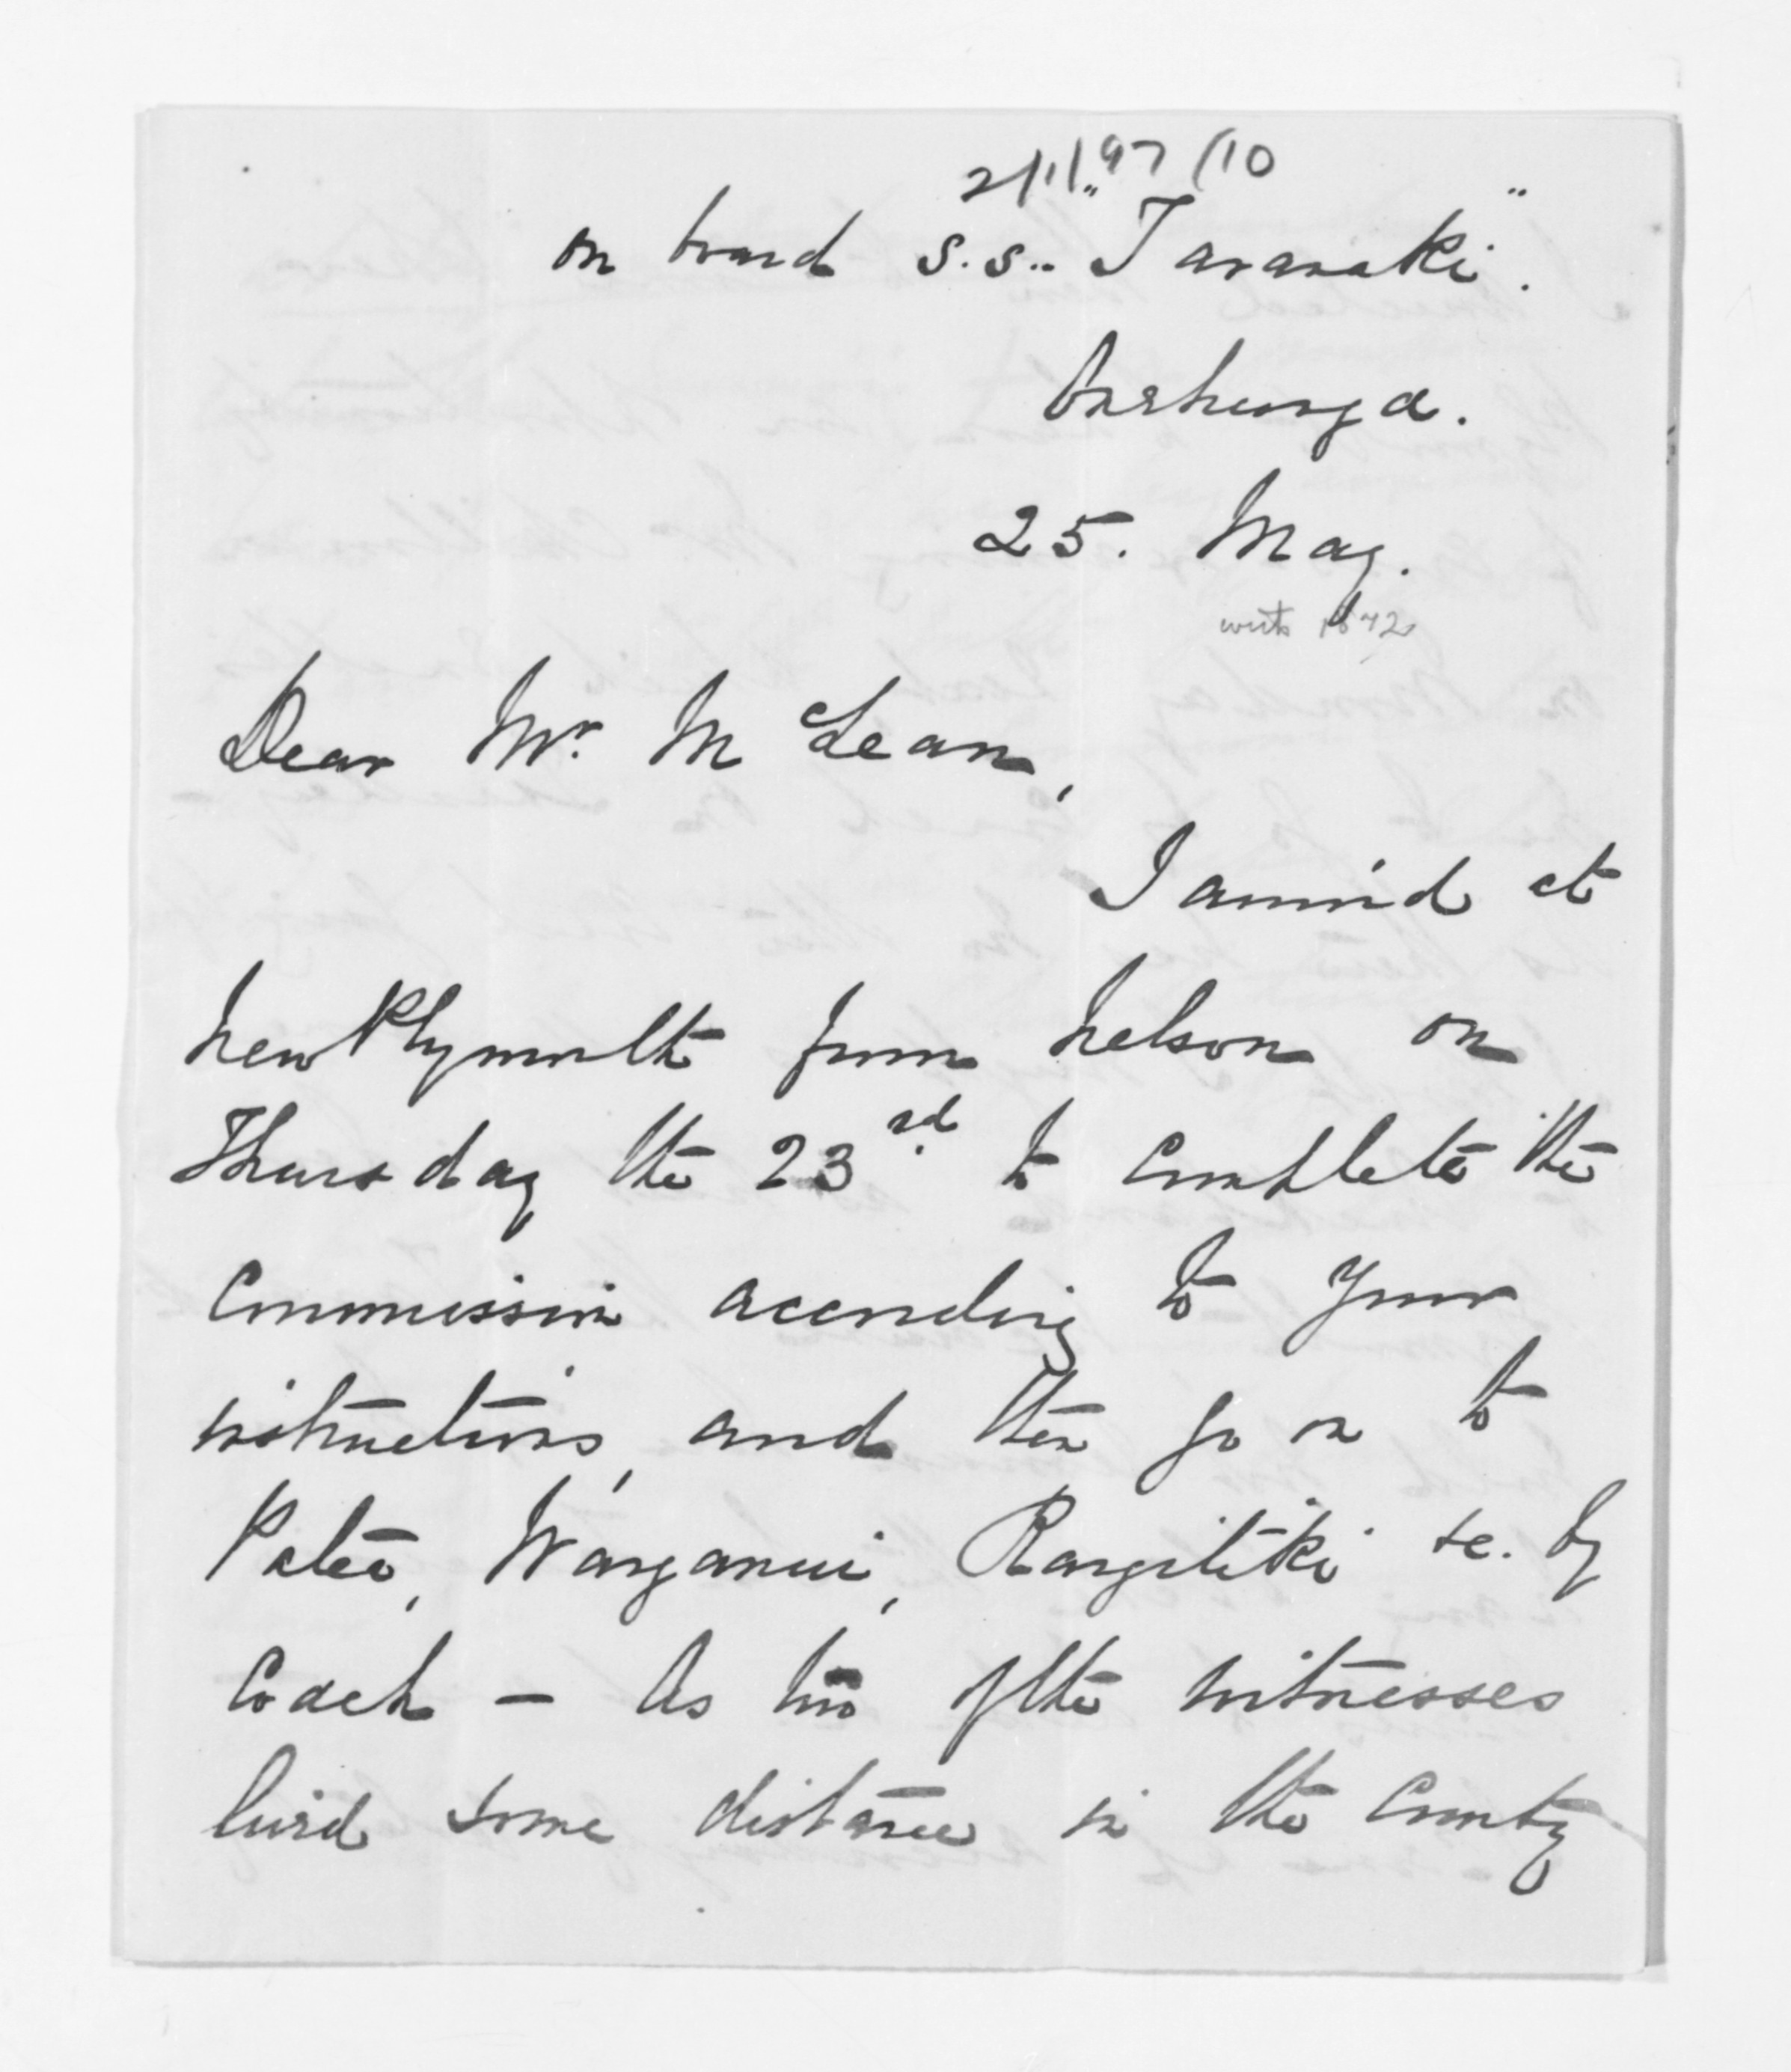 2/11/97/10
on board s.s. "Taranaki".
Onehunga.
25. May.
1872
Dear Mr. McLean,
I arrived at
New Plymouth from Nelson on
Thursday the 23rd. to complete the
Commission according to your
instructions, and then go on to
Patea, Wanganui, Rangitiki &c. by
Coach – As two of the witnesses
lived some distance in the Country